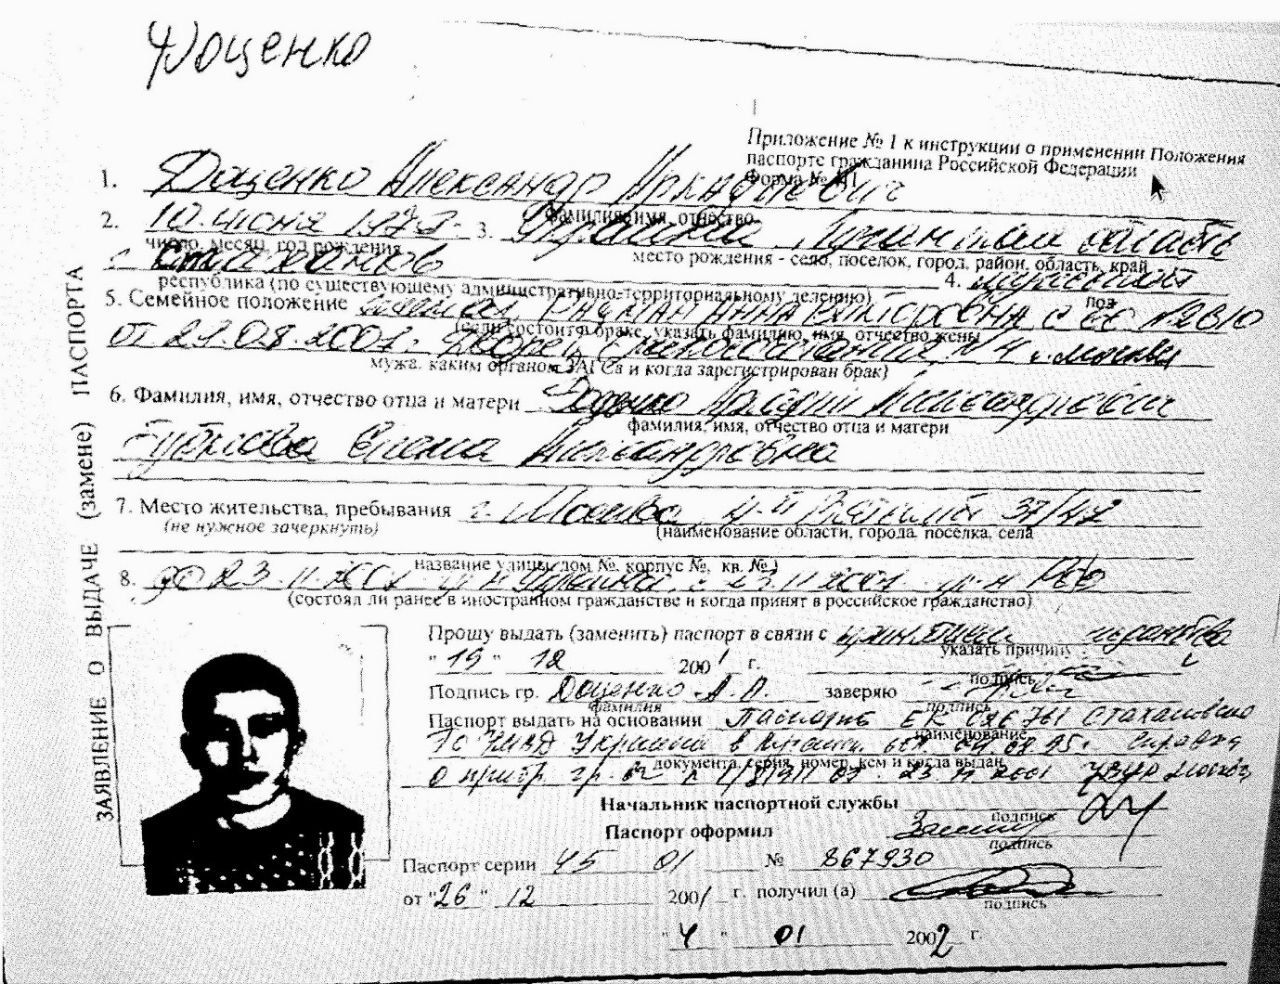 Доценко
Приложение № 1 к инструкции о применении Положения
паспорте гражданина Российской Федерации
Форма №
1. Доценко Александр Аркадиевич
фамилия, имя, отчество
2. 10 июня 197 3. Украина Луганская область
число, месяц, год рождения
место рождения - село, поселок, город, район, область, край
г. Стаханов
республика (по существующему административно-территориальному делению) 4.
пол
5. Семейное положение АННА ВИКТОРОВНА
(если состоит в браке, указать фамилию, имя, отчество жены
от 21.08.2001г. Дворец бракосочетания N 4 г. Москвы
мужа, каким органом ЗАГСа и когда зарегистрирован брак)
6. Фамилия, имя, отчество отца и матери Доценко Аркадий Александрович
фамилия, имя, отчество отца и матери
Елена Александровна
7. Место жительства, пребывания г. Москва 37/42
(не нужное зачеркнуть)
(наименование области, города, поселка, села
название улицы, дом №, корпус №, кв. №)
8. до 23.11.2001 гр-н Украина, с 23.11.2001 гр-н РФ
(состоял ли ранее в иностранном гражданстве и когда принят в российское гражданство)
ЗАЯВЛЕНИЕ О ВЫДАЧЕ (замене) ПАСПОРТА
Прошу выдать (заменить) паспорт в связи с
указать причину
"19" 12 2001 г.
подпись
Подпись гр. Доценко А.А. заверяю
фамилия
подпись
Паспорт выдать на основании Паспорт ЕК Стахановским
наименование
ГО УМВД Украины в Луганск. обл.
документа, серия, номер, кем и когда выдан
23 11 2001
Начальник паспортной службы
подпись
Паспорт оформил
подпись
Паспорт серии 45 01 № 867930
от "26" 12 2001 г. получил (а)
подпись
"4" 01 2002 г.